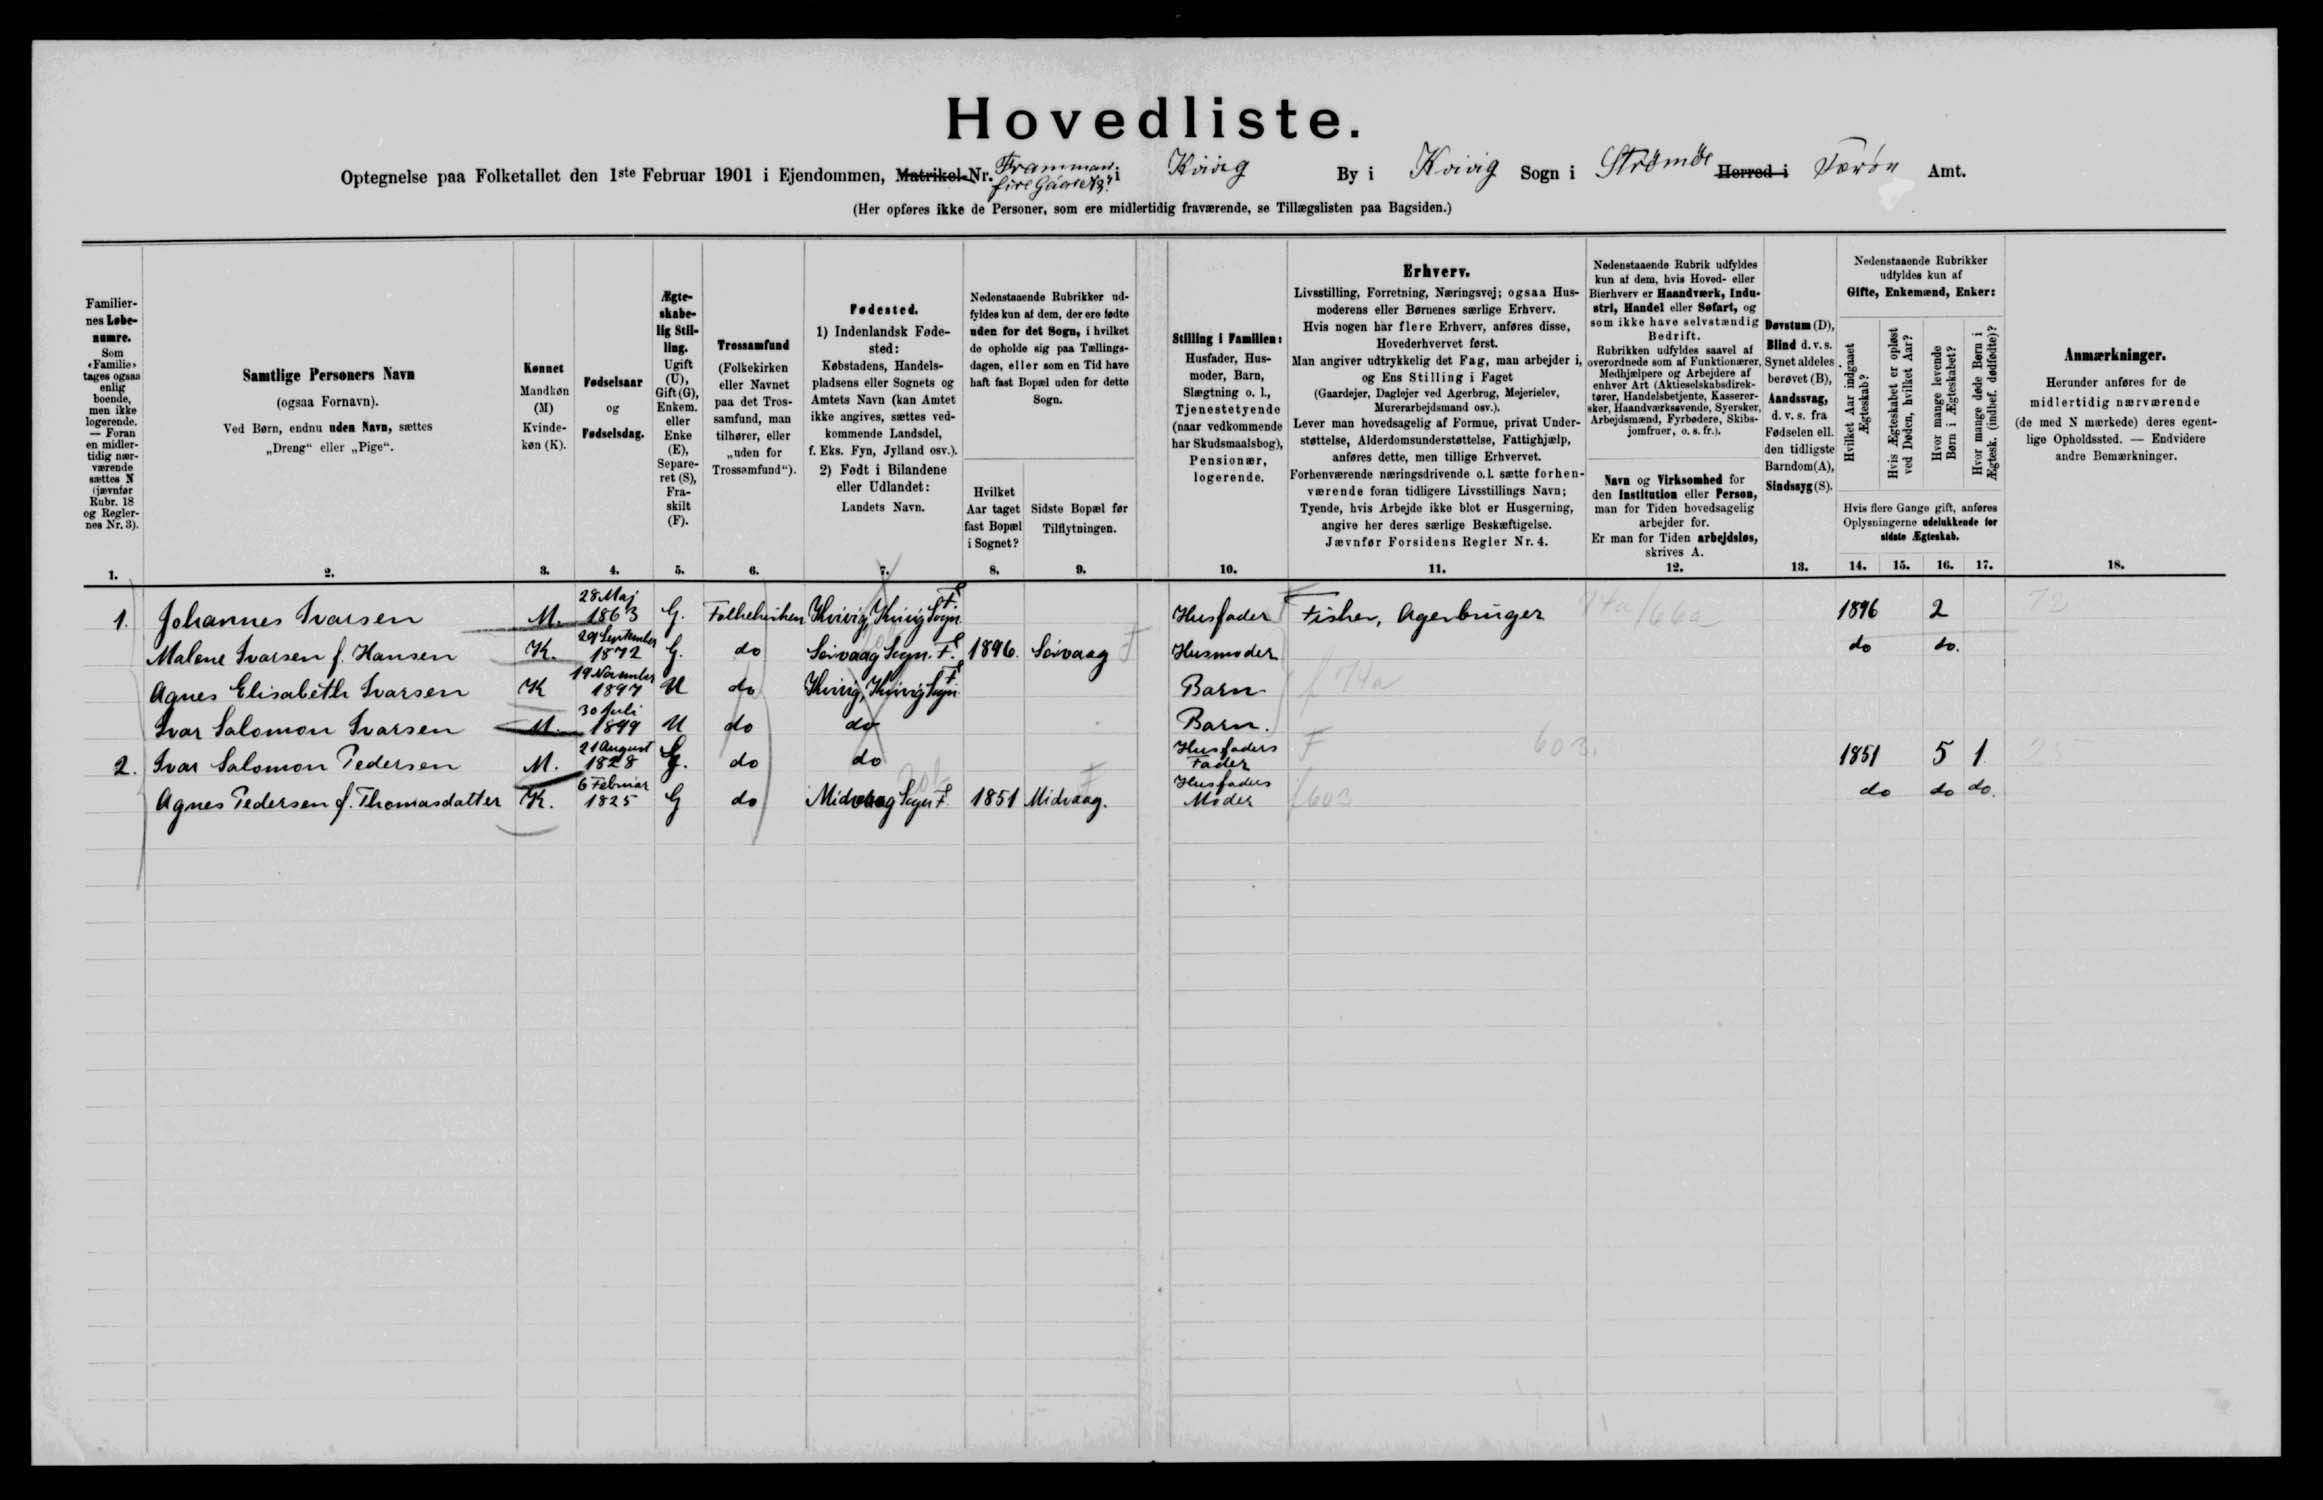 Hovedliste.
Optegnelse paa Folketallet den 1ste Februar 1901 i Ejendommen, Matrikel-Nr. i Kvivig By i Kvivig Sogn i Strömöe Herred i Færøe Amt.
(Her opføres ikke de Personer, som ere midlertidig fraværende, se Tillægslisten paa Bagsiden.)
Familiernes Løbenumre. Som «Familie» tages ogsaa enlig boende, men ikke logerende. — Foran en midlertidig nærværende sættes N (jævnfør Rubr. 18 og Reglernes Nr. 3).
Samtlige Personers Navn
(ogsaa Fornavn).
Ved Børn, endnu uden Navn, sættes
„Dreng“ eller „Pige“.
Kønnet
Mandkøn (M) Kvindekøn (K).
Fødselsaar
og
Fødselsdag.
Ægteskabelig Stilling. Ugift (U), Gift (G), Enkem. eller Enke (E), Separeret (S), Fraskilt (F).
Trossamfund
(Folkekirken eller Navnet paa det Trossamfund, man tilhører, eller „uden for Trossamfund“).
Fødested.
1) Indenlandsk Fødested:
Købstadens, Handelspladsens eller Sognets og Amtets Navn (kan Amtet ikke angives, sættes vedkommende Landsdel, f. Eks. Fyn, Jylland osv.).
2) Født i Bilandene eller Udlandet:
Landets Navn.
Nedenstaaende Rubrikker udfyldes kun af dem, der ere fødte uden for det Sogn, i hvilket de opholde sig paa Tællingsdagen, eller som en Tid have haft fast Bopæl uden for dette Sogn.
Hvilket Aar taget fast Bopæl i Sognet?
Sidste Bopæl før Tilflytningen.
Stilling i Familien:
Husfader, Husmoder, Barn, Slægtning o. l., Tjenestetyende (naar vedkommende har Skudsmaalsbog), Pensionær, logerende.
Erhverv.
Livsstilling, Forretning, Næringsvej; ogsaa Husmoderens eller Børnenes særlige Erhverv.
Hvis nogen har flere Erhverv, anføres disse, Hovederhvervet først.
Man angiver udtrykkelig det Fag, man arbejder i, og Ens Stilling i Faget
(Gaardejer, Daglejer ved Agerbrug, Mejerielev, Murerarbejdsmand osv.).
Lever man hovedsagelig af Formue, privat Understøttelse, Alderdomsunderstøttelse, Fattighjælp, anføres dette, men tillige Erhvervet.
Forhenværende næringsdrivende o. l. sætte forhenværende foran tidligere Livsstillings Navn;
Tyende, hvis Arbejde ikke blot er Husgerning, angive her deres særlige Beskæftigelse.
Jævnfør Forsidens Regler Nr. 4.
Nedenstaaende Rubrik udfyldes kun af dem, hvis Hoved- eller Bierhverv er Haandværk, Industri, Handel eller Søfart, og som ikke have selvstændig Bedrift.
Rubrikken udfyldes saavel af overordnede som af Funktionærer, Medhjælpere og Arbejdere af enhver Art (Aktieselskabsdirektører, Handelsbetjente, Kasserersker, Haandværkssvende, Syersker, Arbejdsmænd, Fyrbødere, Skibsjomfruer, o. s. fr.).
Navn og Virksomhed for den Institution eller Person, man for Tiden hovedsagelig arbejder for.
Er man for Tiden arbejdsløs, skrives A.
Døvstum (D), Blind d. v. s. Synet aldeles berøvet (B), Aandssvag, d. v. s. fra Fødselen ell. den tidligste Barndom (A), Sindssyg (S).
Nedenstaaende Rubrikker udfyldes kun af
Gifte, Enkemænd, Enker:
Hvilket Aar indgaaet Ægteskab?
Hvis Ægteskabet er opløst ved Døden, hvilket Aar?
Hvor mange levende Børn i Ægteskabet?
Hvor mange døde Børn i Ægtesk. (indbef. dødfødte)?
Hvis flere Gange gift, anføres Oplysningerne udelukkende for sidste Ægteskab.
Anmærkninger.
Herunder anføres for de midlertidig nærværende (de med N mærkede) deres egentlige Opholdssted. — Endvidere andre Bemærkninger.
1. 2. 3. 4. 5. 6. 7. 8. 9. 10. 11. 12. 13. 14. 15. 16. 17. 18.
1. Johannes Ivarsen M. 28 Maj 1863 G. Folkekirken Kvivig, Kvivig Sogn F. Husfader Fisker, Agerbruger 74a/66a 1896 2 72
Malene Ivarsen f. Hansen K. 29 September 1872 G. do Sörvaag Sogn. F. 1896. Sörvaag F Husmoder do do.
Agnes Elisabeth Ivarsen K 19 November 1897 U do Kvivig, Kvivig Sogn F Barn f 74a
Ivar Salomon Ivarsen M. 30 Juli 1899 U do do Barn.
2. Ivar Salomon Pedersen M. 21 August 1828 G. do do Husfaders Fader F 603. 1851 5 1 25
Agnes Pedersen f. Thomasdatter K. 6 Februar 1825 G do Midvaag Sogn F 1851 Midvaag. F Husfaders Moder f 603 do do do.